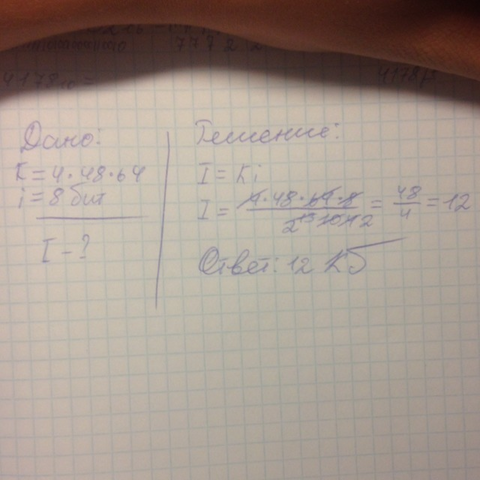 777 2 2
4178
Дано:
K=4·48·64
i=8 бит
I-?
Решение:
I=Ki
I= 4·48·64·8 / 2^13 = 48/4 =12
Ответ: 12 Кб